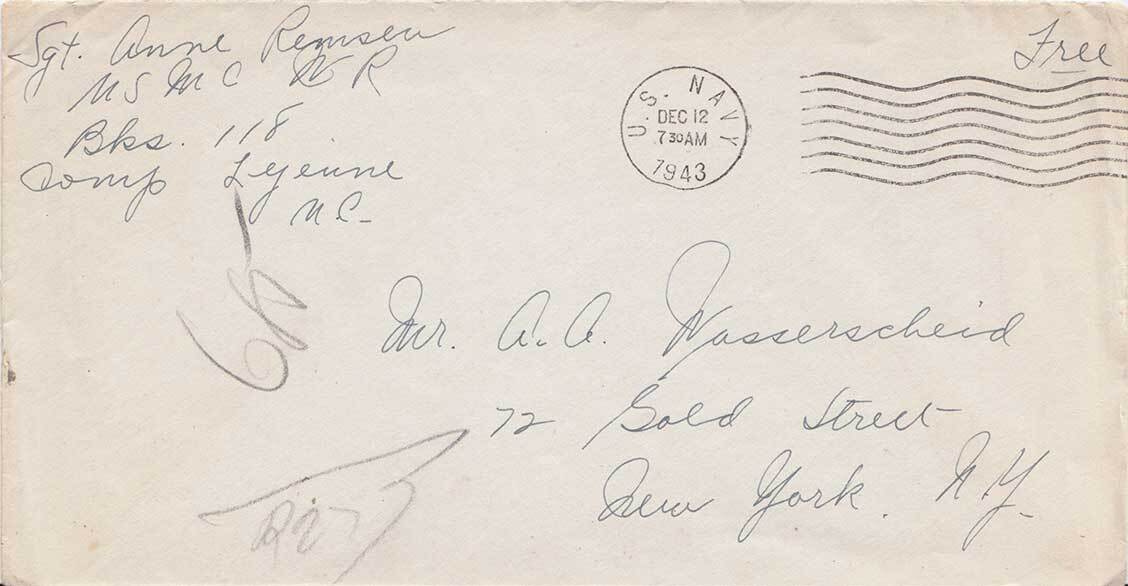 Sgt. Anne Remsen
USMC W R
Bks. 118
Camp Lejeune
N.C.
Free
U.S. NAVY
DEC 12
7 30 AM
1943
Mr. A. A. Wasserscheid
72 Gold Street
New York, N.Y.